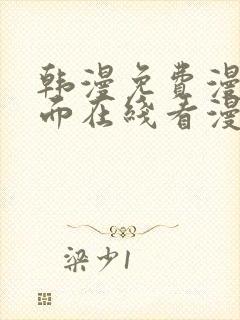 韩漫免费漫
而在线看漫
梁少1